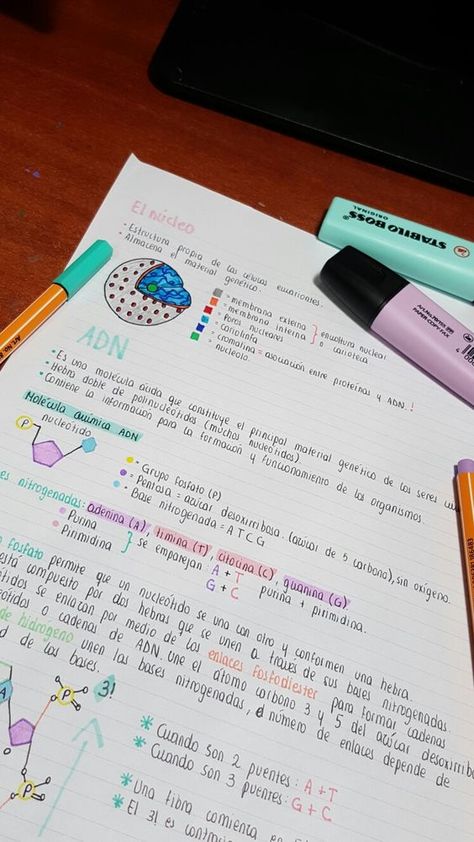 El núcleo
· Estructura propia de las células eucariontes.
· Almacena el material genético.
= membrana externa } envoltura nuclear
= membrana interna o carioteca
= Poros nucleares
= cariolinfa
= cromatina = asociación entre proteínas y ADN !
= nucleolo.
ADN
· Es una molécula ácida que constituye el principal material genético de los seres
· Hebra doble de polinucleótidos (muchos nucleótidos)
· Contiene la información para la formación y funcionamiento de los organismos.
Molécula Química ADN
nucleótido
P
- Grupo fosfato (P)
- Pentosa = azúcar desoxirribosa. (azúcar de 5 carbono), sin oxígeno.
- Base nitrogenada = A T C G
nitrogenadas: adenina (A), timina (T), citocina (C), guanina (G)
· Purina
· Pirimidina } se emparejan : A + T purina + pirimidina.
G + C
fosfato permite que un nucleótido se una con otro y conformen una hebra.
está compuesto por dos hebras que se unen a través de sus bases nitrogenadas.
se enlazan por medio de los enlaces fosfodiester para formar cadenas
o cadenas de ADN. Une el átomo carbono 3 y 5 del azúcar
de hidrógeno unen las bases nitrogenadas, el número de enlaces depende de
de las bases.
A
P
3!
P
* Cuando son 2 puentes: A + T
* Cuando son 3 puentes: G + C
* Una fibra comienza
* El 3! es
STABILO BOSS
ORIGINAL